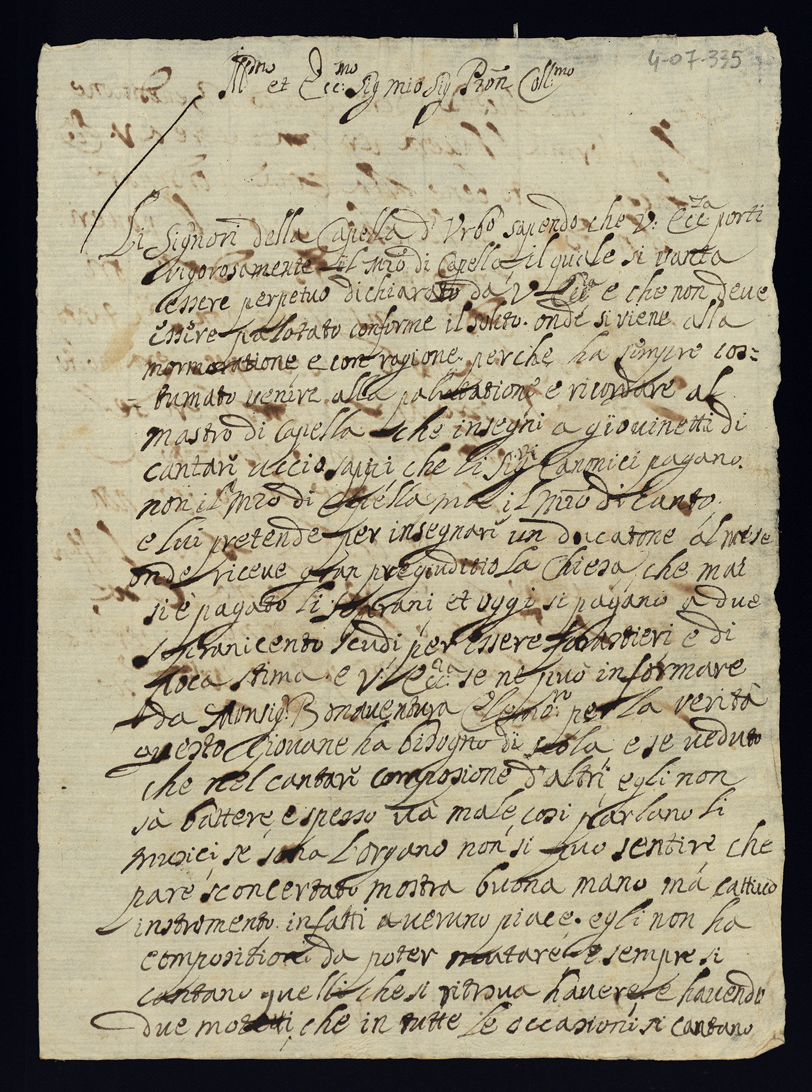 4-07-335
Ill.mo et Ecc.mo Sig mio Sig Pron Coll.mo
Li Signori della Capella d'Urbo sapendo che V. Ecc.za porti
vigorosamente il Mro di Capella il quale si vanta
essere perpetuo dichiarato da V. Ecc.za e che non deve
essere palotato conforme il solito. onde si viene alla
mormoratione e con ragione. perche ha sempre cos=
=tumato venire alla palotatione e ricordare al
mastro di capella che insegni a giovinetti di
cantare acciò sappi che li Sig.ri Canonici pagano.
non il Mro di Capella ma il Mro di Canto.
e lui pretende per insegnare un ducatone al mese
onde riceve gran pregiuditio la Chiesa, che mai
si è pagato li soprani et oggi si pagano a due
soprani cento scudi per essere forastieri e di
poca stima. e V. Ecc.za se ne può informare
da Monsig.r Bonaventura per la verità
questo Giovane ha bisogno di scola e se veduto
che nel cantare compositione d'altri egli non
sà battere, e spesso và male, così parlano li
musici se sona l'organo non si può sentire che
pare sconcertato mostra buona mano mà cattivo
instromento. infatti a veruno piace. egli non ha
compositioni da poter mutare e sempre si
cantano quelli che si ritrova havere, e havendo
due motetti, che in tutte le occasioni si cantano